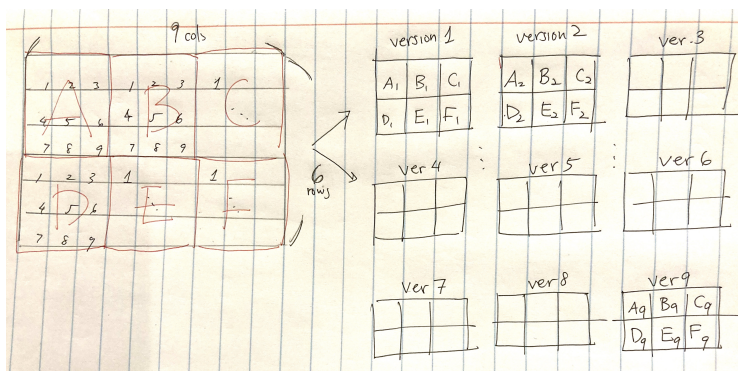 9 cols
1 2 3 1 2 3 1
A B C
4 5 6 4 5 6 ...
7 8 9 7 8 9
1 2 3 1 1
D E F
4 5 6
7 8 9
6 rows
version 1
A1 B1 C1
D1 E1 F1
version 2
A2 B2 C2
D2 E2 F2
ver.3
ver 4
ver 5
ver 6
ver 7
ver 8
ver 9
A9 B9 C9
D9 E9 F9